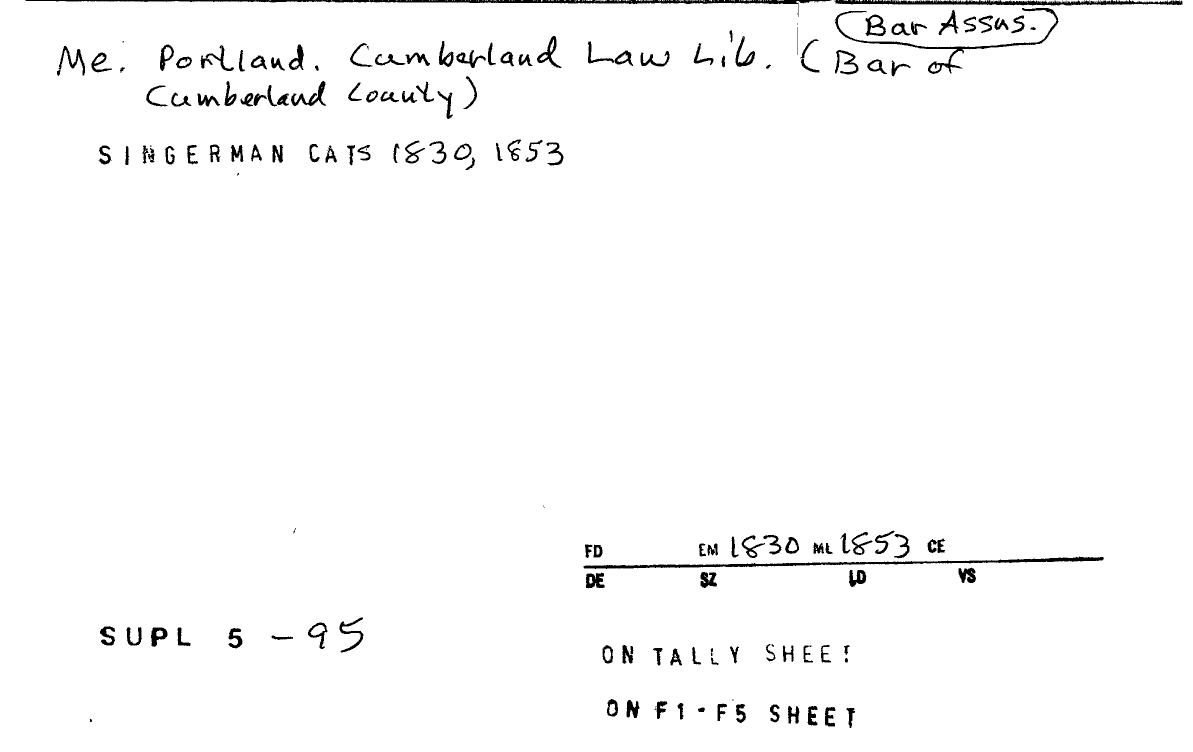 Bar Assns.
Me. Portland. Cumberland Law Lib. (Bar of
Cumberland County)
SINGERMAN CATS 1830, 1853
FD EM 1830 ML 1853 CE
DE SZ LD VS
SUPL 5 -95
ON TALLY SHEET
ON F1-F5 SHEET